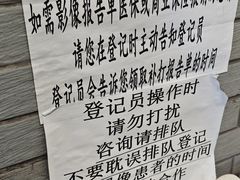 如需影像报告单医保或商业保险报销
请您在登记时主动告知登记员
登记员会告诉您领取补打报告单的时间
登记员操作时
请勿打扰
咨询请排队
不要耽误排队登记
像患者的时间
合作